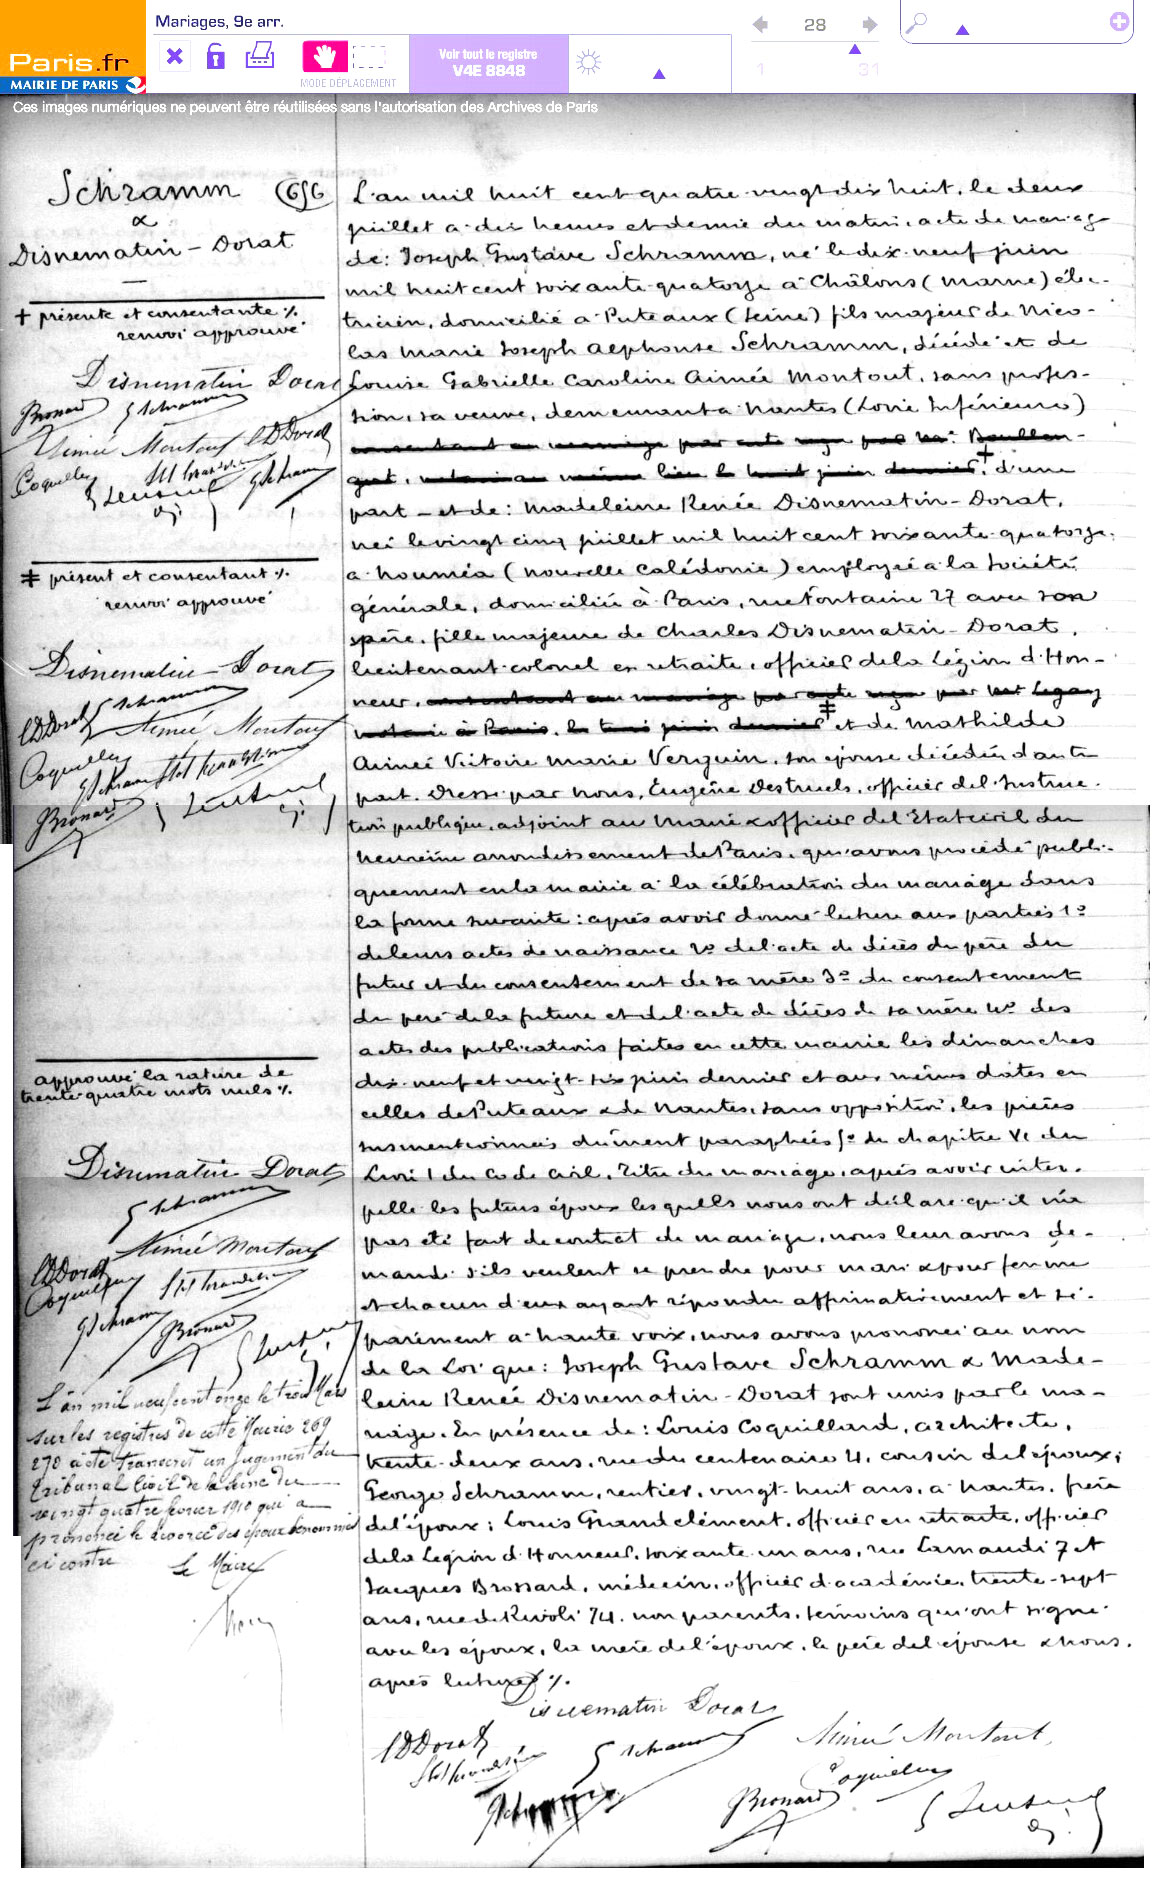 Mariages, 9e arr.
28
Paris.fr
MAIRIE DE PARIS
MODE DÉPLACEMENT
Voir tout le registre
V4E 8848
1
31
Ces images numériques ne peuvent être réutilisées sans l'autorisation des Archives de Paris
Schramm 656
&
Disnematin - Dorat
+ présente et consentante %
renvoi approuvé
Disnematin Dorat
Brossard G Schramm
Aimée Montout CDDorat
Coquillard
G Schramm
‡ présent et consentant %
renvoi approuvé
Disnematin - Dorat
G Schramm
CDDorat Aimée Montout
Coquillard
G Schramm
Brossard
approuvé la rature de
trente-quatre mots nuls %
Disnematin Dorat
G Schramm
Aimée Montout
CDDorat
Coquillard
G Schramm
Brossard
L'an mil neuf cent onze le trois Mars
sur les registres de cette Mairie 269
270 a été transcrit un Jugement du
Tribunal Civil de la Seine du
vingt quatre février 1910 qui a
prononcé le divorce des époux dénommés
ci contre
Le Maire
L'an mil huit cent quatre-vingt dix huit, le deux
juillet à dix heures et demie du matin, acte de mariage
de: Joseph Gustave Schramm, né le dix-neuf juin
mil huit cent soixante-quatorze à Châlons (Marne) élec-
tricien, domicilié à Puteaux (Seine) fils majeur de Nico-
las Marie Joseph Alphonse Schramm, décédé et de
Louise Gabrielle Caroline Aimée Montout, sans profes-
sion, sa veuve, demeurant à Nantes (Loire Inférieure)
consentant au mariage par acte reçu par Me Boullan-
get, notaire au même lieu le huit juin dernier, + d'une
part - et de: Madeleine Renée Disnematin - Dorat,
née le vingt cinq juillet mil huit cent soixante-quatorze,
à Nouméa (Nouvelle Calédonie) employée à la Société
générale, domiciliée à Paris, rue Fontaine 27 avec son
père, fille majeure de Charles Disnematin - Dorat,
lieutenant-colonel en retraite, officier de la Légion d'Hon-
neur, consentant au mariage par acte reçu par Me Legay
notaire à Paris, le trois juin dernier ‡ et de Mathilde
Aimée Victoire Marie Verguin, son épouse décédée d'autre
part. Dressé par nous, Eugène Destruels, officier de l'Instruc-
tion publique, adjoint au Maire & officier de l'Etat civil du
neuvième arrondissement de Paris, qui avons procédé publi-
quement en la mairie à la célébration du mariage dans
la forme suivante: après avoir donné lecture aux parties 1º
de leurs actes de naissance 2º de l'acte de décès du père du
futur et du consentement de sa mère 3º du consentement
du père de la future et de l'acte de décès de sa mère 4º des
actes des publications faites en cette mairie les dimanches
dix-neuf et vingt-six juin dernier et aux mêmes dates en
celles de Puteaux & de Nantes, sans opposition, les pièces
susmentionnées dûment paraphées 5º du chapitre VI du
Livre I du Code Civil, Titre du mariage, après avoir inter-
pellé les futurs époux lesquels nous ont déclaré qu'il n'a
pas été fait de contrat de mariage, nous leur avons de-
mandé s'ils veulent se prendre pour mari & pour femme
et chacun d'eux ayant répondu affirmativement et sé-
parément à haute voix, nous avons prononcé au nom
de la Loi que: Joseph Gustave Schramm & Made-
leine Renée Disnematin - Dorat sont unis par le ma-
riage. En présence de: Louis Coquillard, architecte,
trente-deux ans, rue du centenaire 4, cousin de l'époux;
George Schramm, rentier, vingt-huit ans, à Nantes, frère
de l'époux; Louis Grandclément, officier en retraite, officier
de la Légion d'Honneur, soixante un ans, rue Lamandé 7 et
Jacques Brossard, médecin, officier d'académie, trente-sept
ans, rue de Rivoli 74, non parents, témoins qui ont signé
avec les époux, la mère de l'époux, le père de l'épouse & nous,
après lecture %.
Disnematin Dorat
CDDorat G Schramm Aimée Montout
Coquillard
G Schramm Brossard